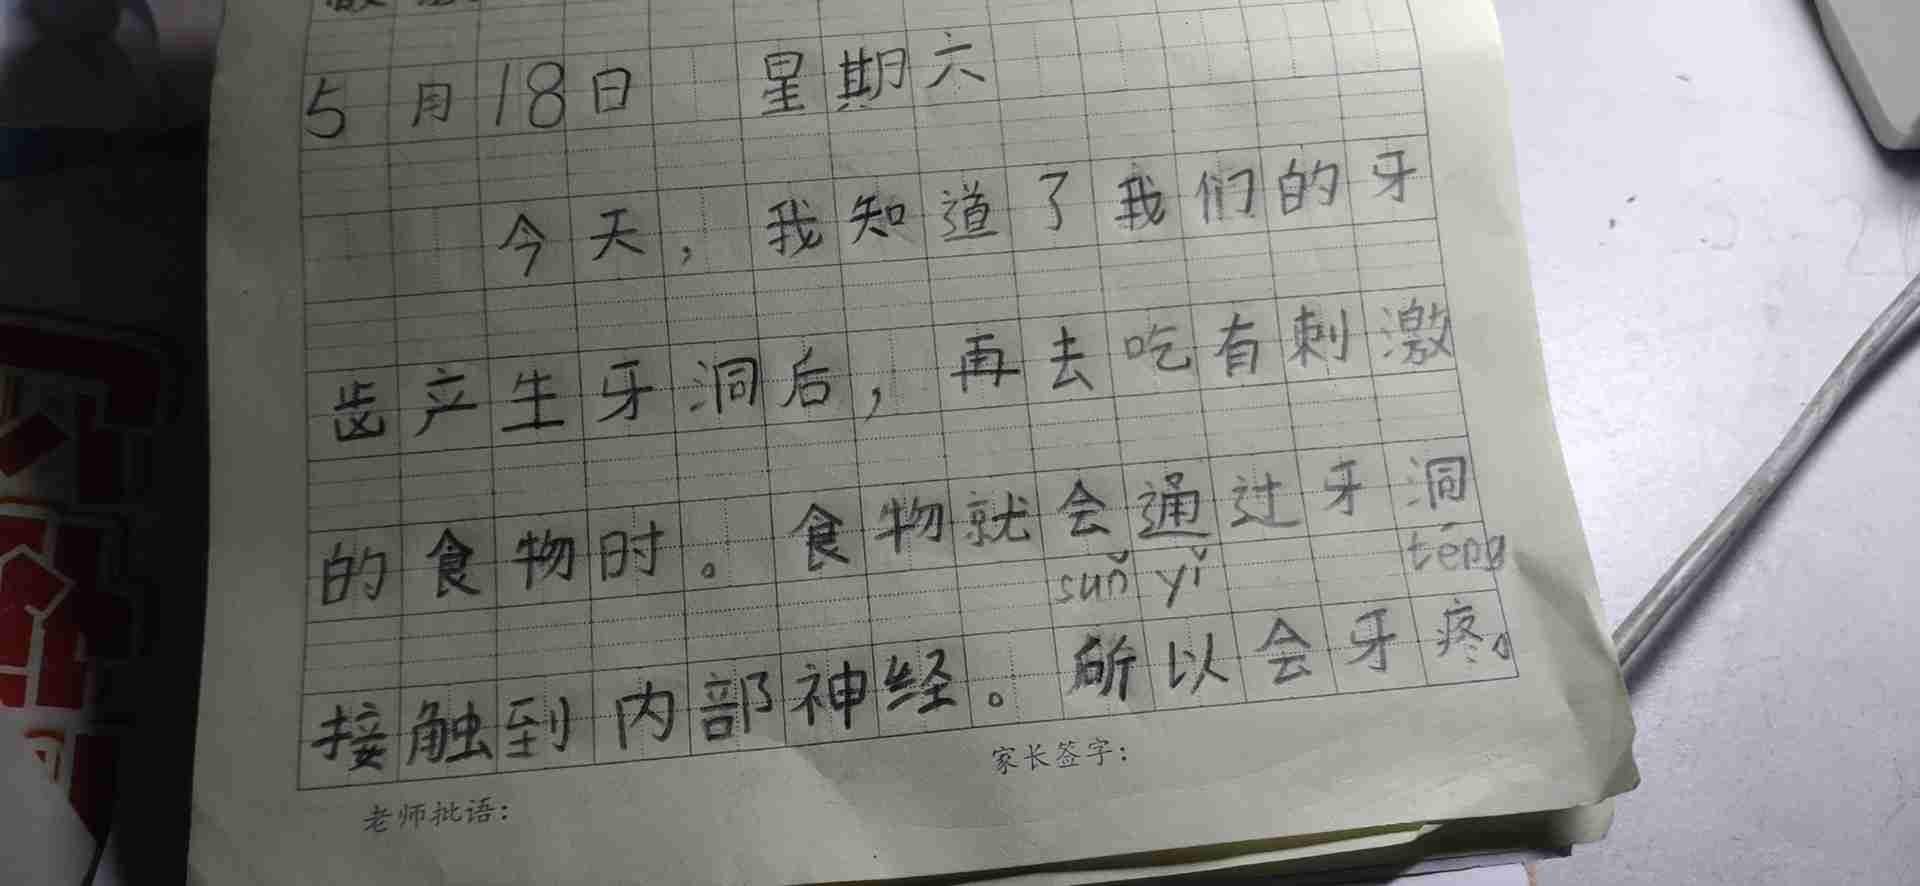 5月18日 星期六
今天，我知道了我们的牙
齿产生牙洞后，再去吃有刺激
的食物时。食物就会通过牙洞
suǒ yǐ téng
接触到内部神经。所以会牙疼。
家长签字：
老师批语：